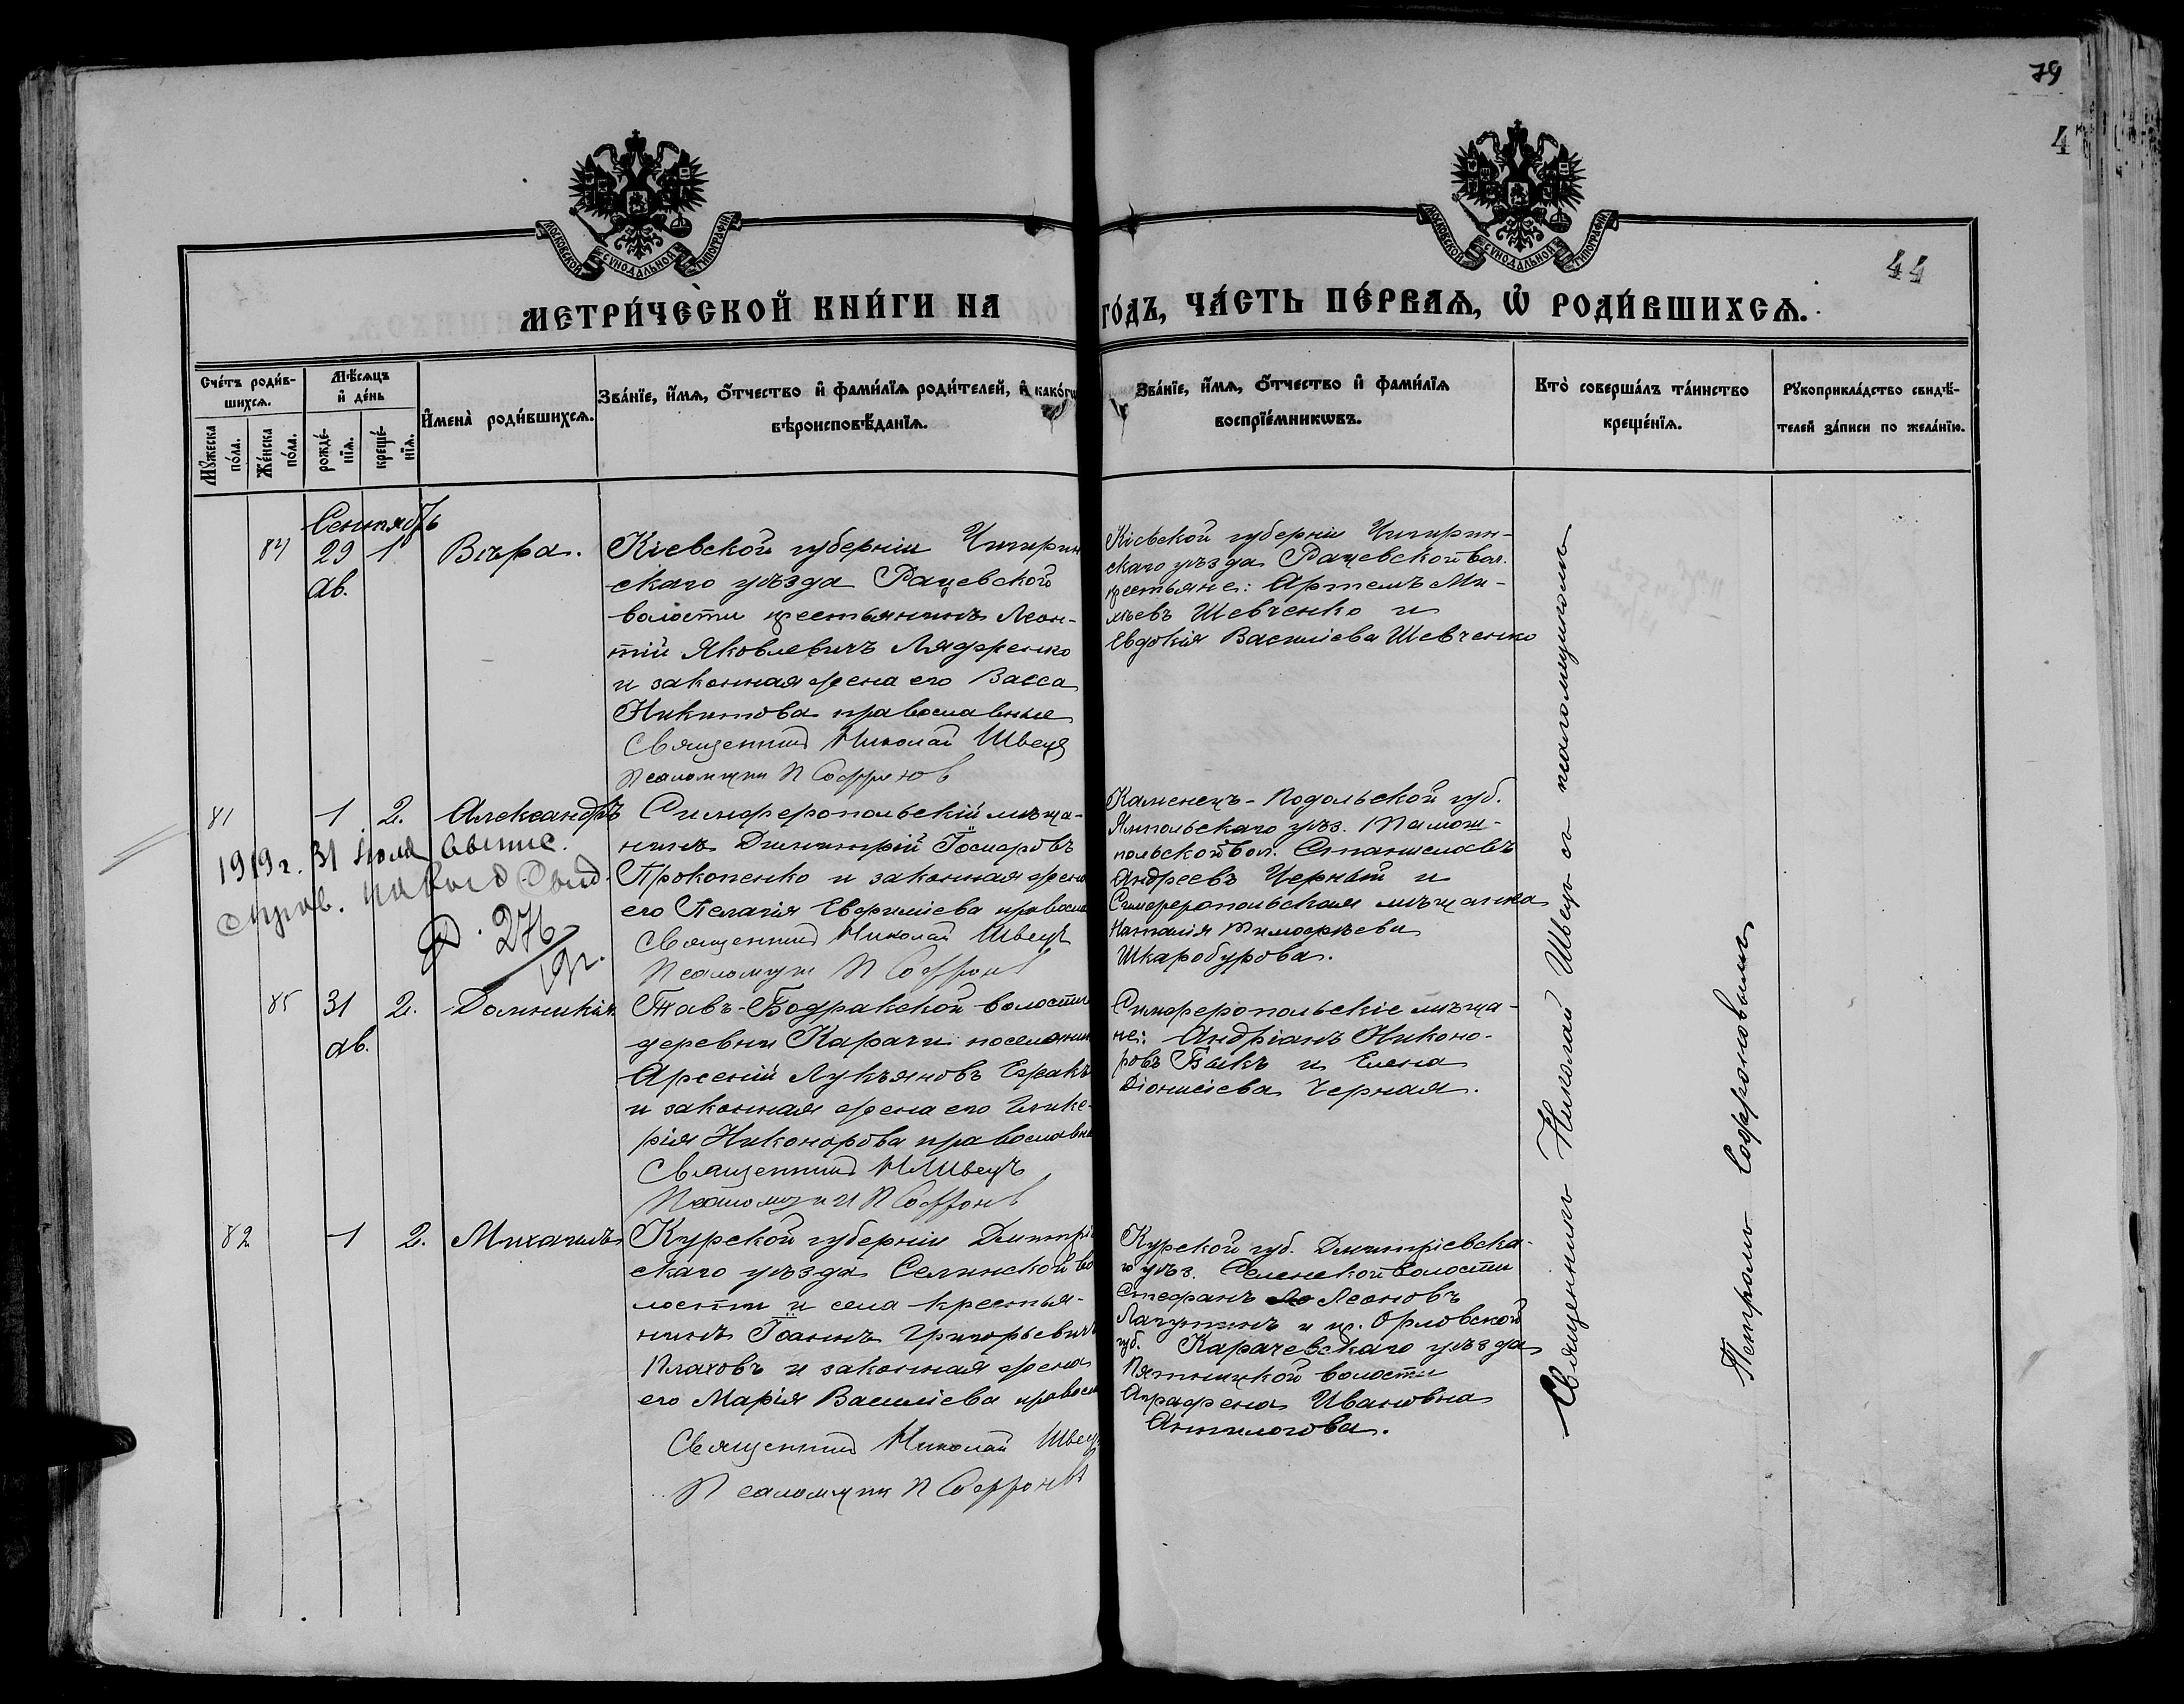 79
4
44
МОСКОВСКОЙ СѴНОДАЛЬНОЙ ТИПОГРАФІИ
МОСКОВСКОЙ СѴНОДАЛЬНОЙ ТИПОГРАФІИ
МЕТРИ́ЧЕСКОЙ КНИ́ГИ НА
ГО́ДЪ, ЧА́СТЬ ПЕ́РВАѦ, Ѡ҆ РОДИ́ВШИХСѦ.
Сче́тъ роди́в-
шихсѧ.
Мꙋ́жеска по́ла.
Же́нска по́ла.
Мѣ́сѧцъ
и҆ де́нь
рожде́-
нїѧ.
креще́-
нїѧ.
И҆мена̀ роди́вшихсѧ.
Зва́нїе, и҆́мѧ, ѻ҆́тчество и҆ фами́лїѧ роди́телей, и҆ како́гѡ
вѣроисповѣ́данїѧ.
Зва́нїе, и҆́мѧ, ѻ҆́тчество и҆ фами́лїѧ
воспрїе́мникѡвъ.
Кто̀ соверша́лъ та́инство
креще́нїѧ.
Рꙋкоприкла́дство свидѣ́-
телей за́писи по жела́нїю.
Сентябрь
84 29 1 Вѣра.
ав.
Кіевской губерніи Чигирин
скаго уѣзда Рацевской
волости крестьянинъ Леон-
тій Яковлевичъ Лядренко
и законная жена его Васса
Никитова православные
Священникъ Николай Швецъ
Псаломщикъ П Софронов
Кіевской губерніи Чигирин-
скаго уѣзда Рацевской вол.
крестьяне: Артемъ Ми-
хѣевъ Шевченко и
Евдокія Василіева Шевченко
81 1 2. Александръ
1919 г. 31 іюля
выд. 276
19 г.
Симферопольскій мѣща-
нинъ Димитрій Іосифовъ
Прокопенко и законная жена
его Пелагія Евфиміева правосл
Священникъ Николай Швецъ
Псаломщикъ П Софронов
Каменецъ-Подольской губ.
Ямпольскаго уѣз. Томаш-
польской вол. Станиславъ
Андреевъ Черный и
Симферопольская мѣщанка
Наталія Тимофѣева
Шкаробурова.
85 31 2. Домникія
ав.
Тавъ-Бодракской волости
деревни Карачи поселянин
Арсеній Лукьяновъ Ермакъ
и законная жена его Глике-
рія Никонорова православн
Священникъ Н Швецъ
Псаломщикъ П Софронов
Симферопольскіе мѣща-
не: Андріанъ Никоно-
ровъ Быкъ и Елена
Діонисіева Черная.
82 1 2. Михаилъ
Курской губерніи Дмитрі
скаго уѣзда Селинской во
лости и села крестья-
нинъ Іоаннъ Григорьевичъ
Плаховъ и законная жена
его Марія Василіева правосл
Священникъ Николай Швец
Псаломщикъ П Софронов
Курской губ. Дмитріевска-
го уѣз. Селенской волости
Стефанъ Леоновъ
Лагутинъ и кр. Орловской
губ. Карачевскаго уѣзда
Пятницкой волости
Аграфена Ивановна
Антилогова.
Священникъ Николай Швецъ съ псаломщикомъ
Петромъ Софроновымъ